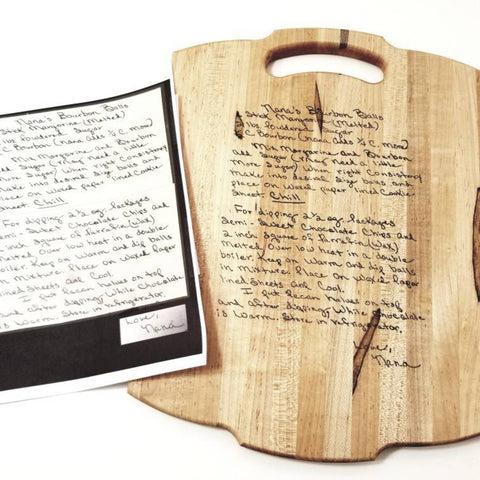 Nana's Bourbon Balls
Stick Margarine (Melted)
lbs Powdered Sugar
C Bourbon (nana adds 1/4 C. More)
Mix Margarine and Bourbon
add Sugar (May need a little
More Sugar) When right Consistency
make into little balls and
place on Waxed paper lined Cookie
Sheet Chill
For dipping 2 1/2 oz. packages
Semi-Sweet Chocolate Chips and
2 inch square of Parrafin (Wax)
Melted Over low heat in a double
boiler. Keep on Warm and dip Balls
in Mixture. Place on Waxed Paper
lined Sheets and Cool.
I put pecan halves on top
and after dipping while Chocolate
is Warm. Store in refrigerator.
Love,
Nana
Nana's Bourbon Balls
Stick Margarine (Melted)
lbs Powdered Sugar
C Bourbon (nana adds 1/4 C. More)
Mix Margarine and Bourbon
add Sugar (May need a little
More Sugar) When right Consistency
make into little balls and
place on Waxed paper lined Cookie
Sheet Chill
For dipping 2 1/2 oz. packages
Semi-Sweet Chocolate Chips and
2 inch square of Parrafin (Wax)
Melted Over low heat in a double
boiler. Keep on Warm and dip Balls
in Mixture. Place on Waxed Paper
lined Sheets and Cool.
I put pecan halves on top
and after dipping while Chocolate
is Warm. Store in refrigerator.
Love,
Nana